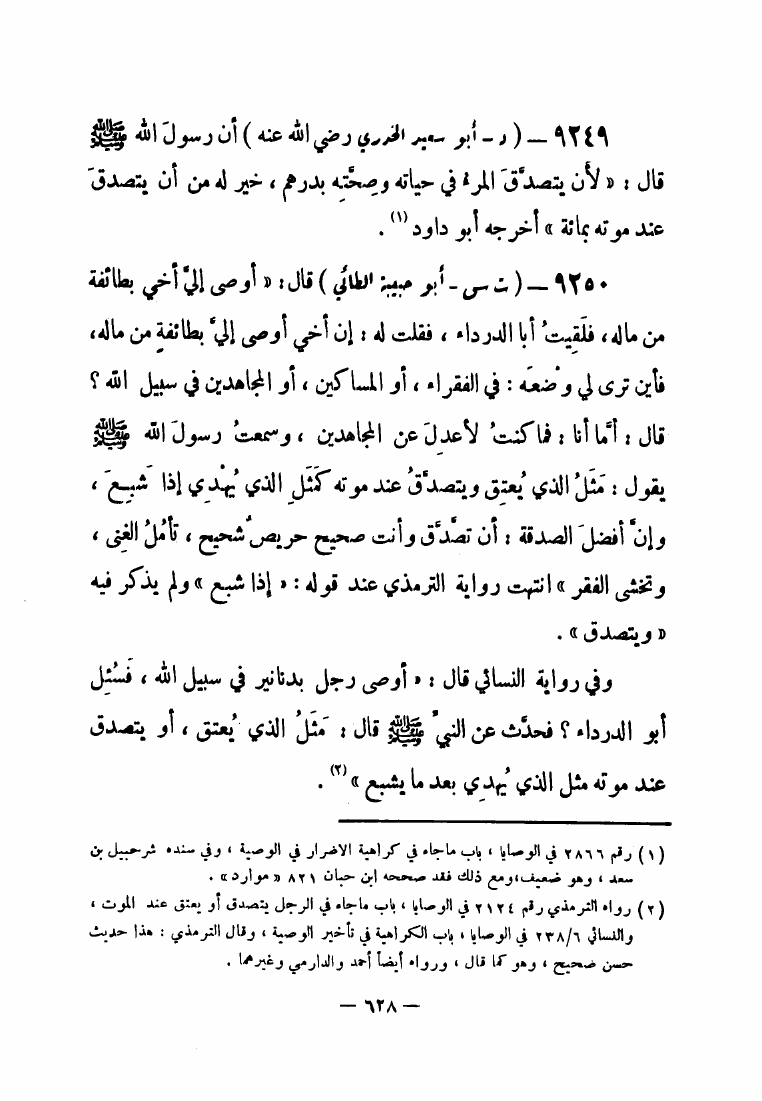 ٩٢٤٩ – ( د – أبو سعيد الخدري رضي الله عنه ) أن رسولَ الله ﷺ
قال : « لأن يتصدَّقَ المرءُ في حياته وصِحَّتِه بدرهم ، خير له من أن يتصدقَ
عند موته بمائة » أخرجه أبو داود (١) .
٩٢٥٠ – ( ت س – أبو حبيبة الطائي ) قال : « أوصى إليَّ أخي بطائفة
من ماله، فلَقِيتُ أبا الدرداء ، فقلت له : إن أخي أوصى إليَّ بطائفةٍ من ماله،
فأين ترى لي وضعَه : في الفقراء ، أو المساكين ، أو المجاهدين في سبيل الله ؟
قال : أمَّا أنا : فما كنتُ لأعدِلَ عن المجاهدين ، وسمعتُ رسولَ الله ﷺ
يقول : مَثَلُ الذي يُعتِق ويتصدَّقُ عند موته كَمَثَلِ الذي يُهْدِي إذا شَبِعَ ،
وإنَّ أفضلَ الصدقة : أن تصَّدَّق وأنت صحيح حريصٌ شحيح ، تأمُلُ الغِنى ،
وتخشى الفقر » انتهت رواية الترمذي عند قوله : « إذا شبع » ولم يذكر فيه
« ويتصدق » .
وفي رواية النسائي قال : « أوصى رجل بدنانير في سبيل الله ، فَسُئِل
أبو الدرداء ؟ فحدَّث عن النبيِّ ﷺ قال : مَثَلُ الذي يُعتق ، أو يتصدق
عند موته مثل الذي يُهدِي بعد ما يشبع » (٢) .
(١) رقم ٢٨٦٦ في الوصايا ، باب ماجاء في كراهية الاضرار في الوصية ، وفي سنده شرحبيل بن
سعد ، وهو ضعيف،ومع ذلك فقد صححه ابن حبان ٨٢١ « موارد» .
(٢) رواه الترمذي رقم ٢١٢٤ في الوصايا ، باب ماجاء في الرجل يتصدق أو يعتق عند الموت ،
والنسائي ٢٣٨/٦ في الوصايا ، باب الكراهية في تأخير الوصية ، وقال الترمذي : هذا حديث
حسن صحيح ، وهو كما قال ، ورواه أيضاً أحمد والدارمي وغيرهما .
– ٦٢٨ –